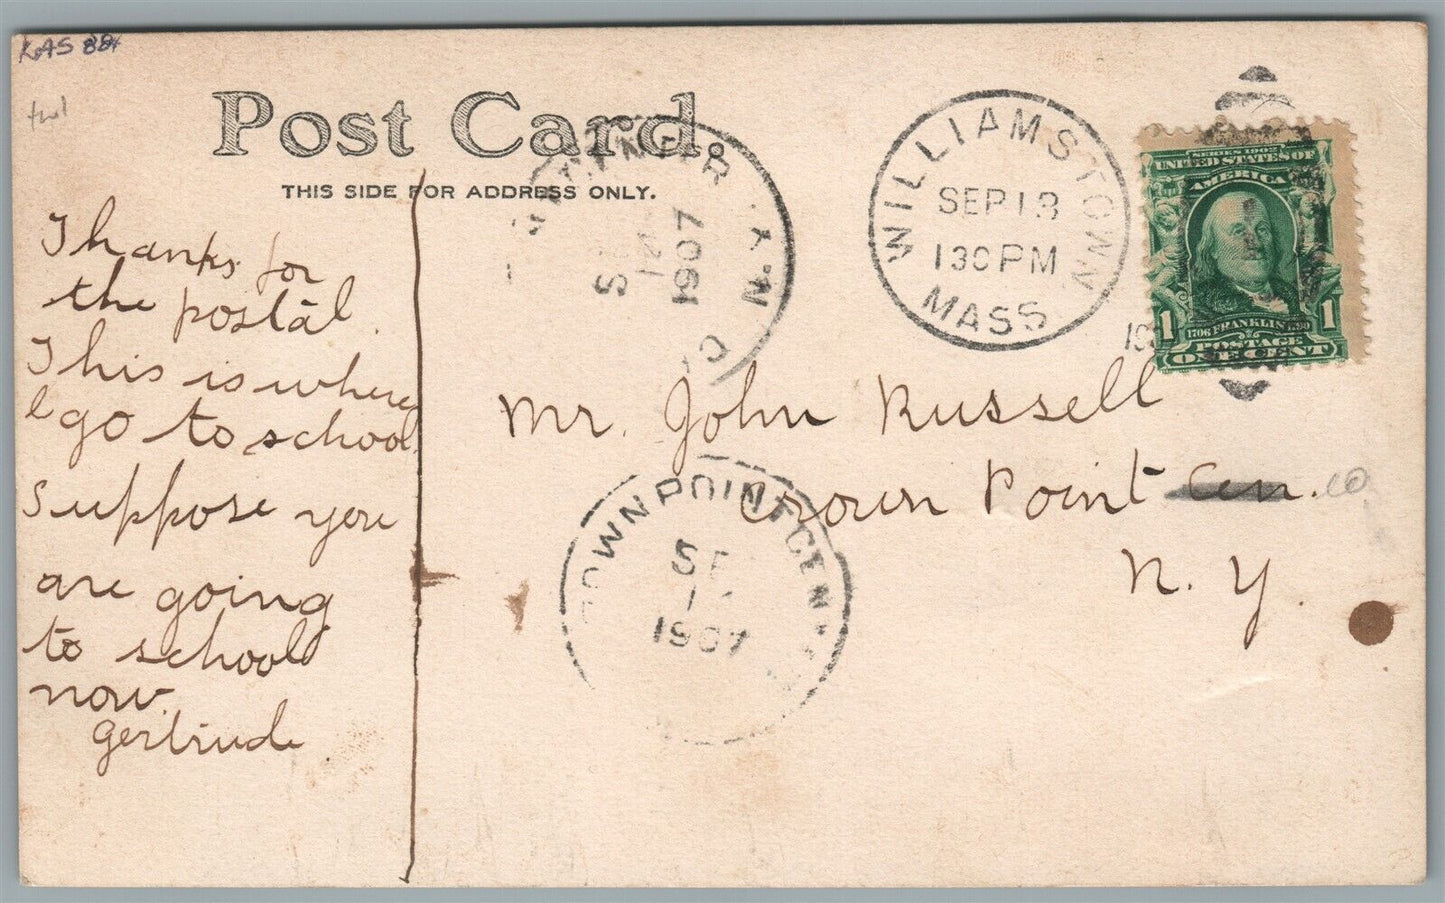 KAS 884
twl
Post Card.
THIS SIDE FOR ADDRESS ONLY.
Thanks for
the postal.
This is where
I go to school.
Suppose you
are going
to school
now.
Gertrude
N.Y.
S
1907
WILLIAMSTOWN
SEP 13
130 PM
MASS.
SERIES 1902
UNITED STATES OF
AMERICA
1 1706 FRANKLIN 1790 1
POSTAGE
ONE CENT
Mr. John Russell
Crown Point Cen. co
N. Y.
OWN POINT CEN
SE
1907